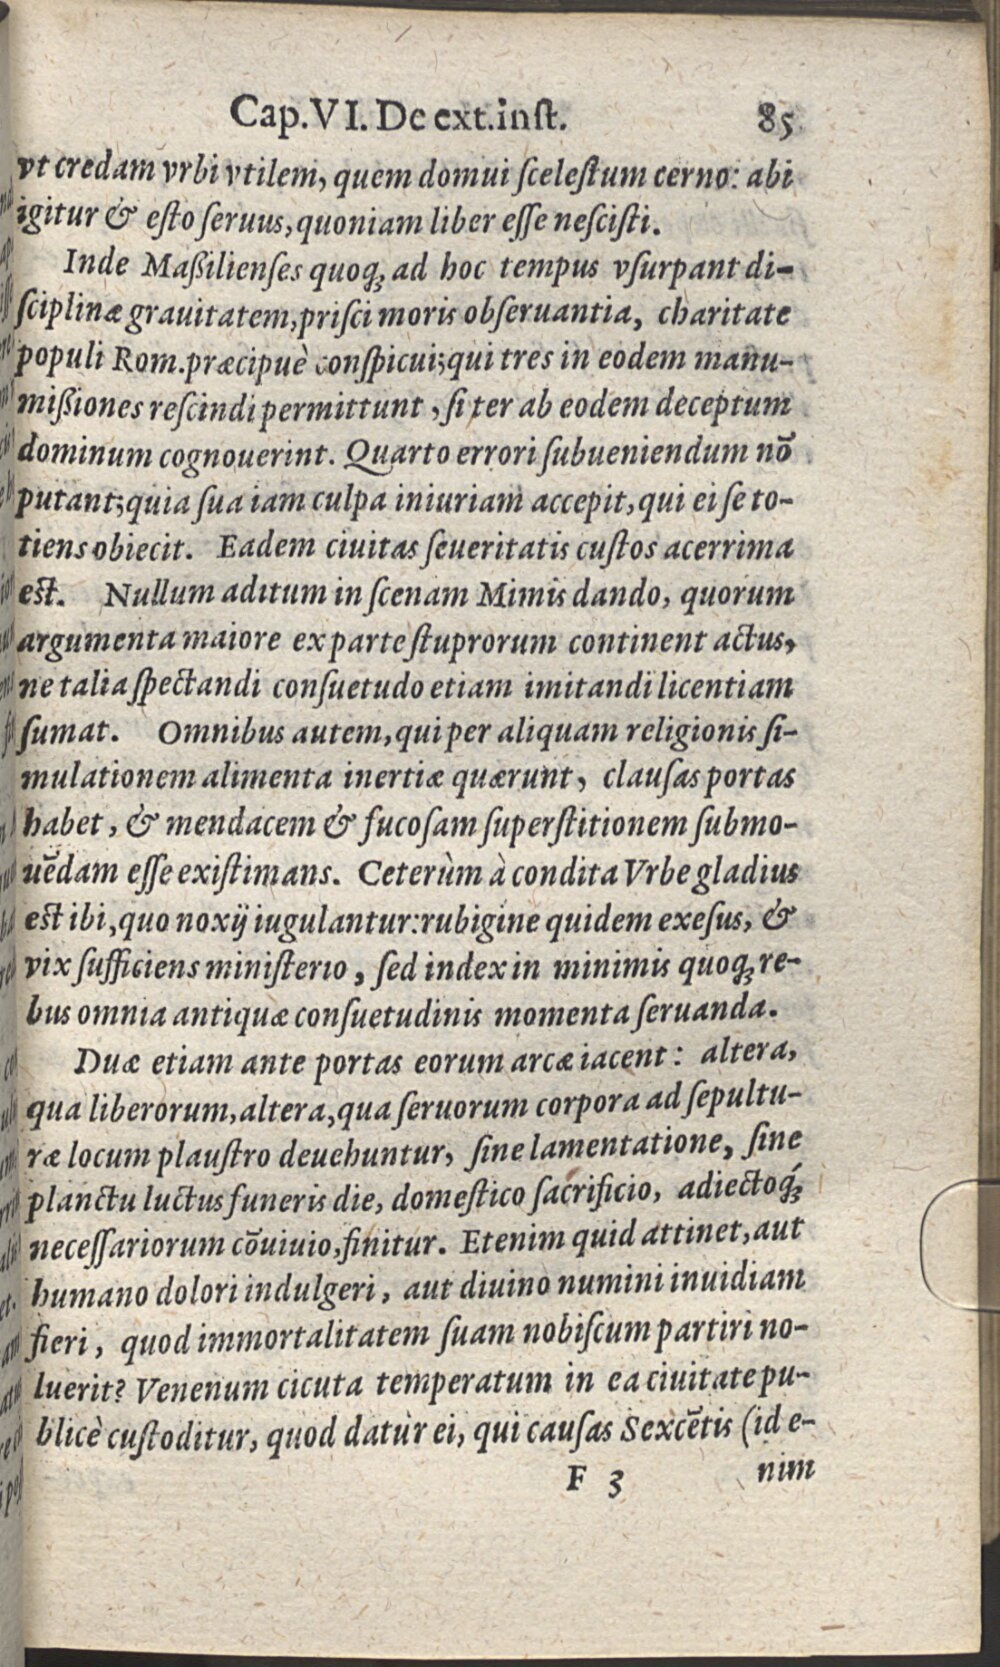 Cap.VI. De ext.inſt. 85
vt credam vrbi vtilem, quem domui ſceleſtum cerno: abi
igitur & eſto ſeruus, quoniam liber eſſe neſciſti.
Inde Maßilienſes quoq; ad hoc tempus vſurpant di-
ſciplinæ grauitatem, priſci moris obſeruantia, charitate
populi Rom. præcipuè conſpicui; qui tres in eodem manu-
mißiones reſcindi permittunt, ſi ter ab eodem deceptum
dominum cognouerint. Quarto errori ſubueniendum nō
putant; quia ſua iam culpa iniuriam accepit, qui ei ſe to-
tiens obiecit. Eadem ciuitas ſeueritatis cuſtos acerrima
eſt. Nullum aditum in ſcenam Mimis dando, quorum
argumenta maiore ex parte ſtuprorum continent actus,
ne talia ſpectandi conſuetudo etiam imitandi licentiam
ſumat. Omnibus autem, qui per aliquam religionis ſi-
mulationem alimenta inertiæ quærunt, clauſas portas
habet, & mendacem & fucoſam ſuperſtitionem ſubmo-
uēdam eſſe exiſtimans. Ceterùm à condita Vrbe gladius
eſt ibi, quo noxij iugulantur: rubigine quidem exeſus, &
vix ſufficiens miniſterio, ſed index in minimis quoq; re-
bus omnia antiquæ conſuetudinis momenta ſeruanda.
Duæ etiam ante portas eorum arcæ iacent: altera,
qua liberorum, altera, qua ſeruorum corpora ad ſepultu-
ræ locum plauſtro deuehuntur, ſine lamentatione, ſine
planctu luctus funeris die, domeſtico ſacrificio, adiectoq́;
neceſſariorum cōuiuio, finitur. Etenim quid attinet, aut
humano dolori indulgeri, aut diuino numini inuidiam
fieri, quod immortalitatem ſuam nobiſcum partiri no-
luerit? Venenum cicuta temperatum in ea ciuitate pu-
blicè cuſtoditur, quod datur ei, qui cauſas Sexcētis (id e-
F 3 nim